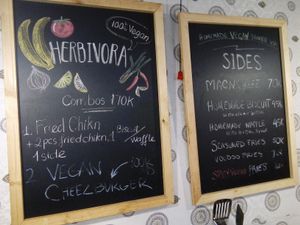 100% Vegan
HERBIVORA
Combos 170K
1. Fried Chikn
+ 2pcs fried chikn, 1 Biscuit/
1 side Waffle
2. VEGAN
CHEEZBURGER
HOMEMADE VEGAN
SIDES
MAC N SHEEZ 70K
HOMEMADE BISCUIT 45K
HOMEMADE WAFFLE 45K
SEASONED FRIES 50K
VOODOO FRIES
FRIES